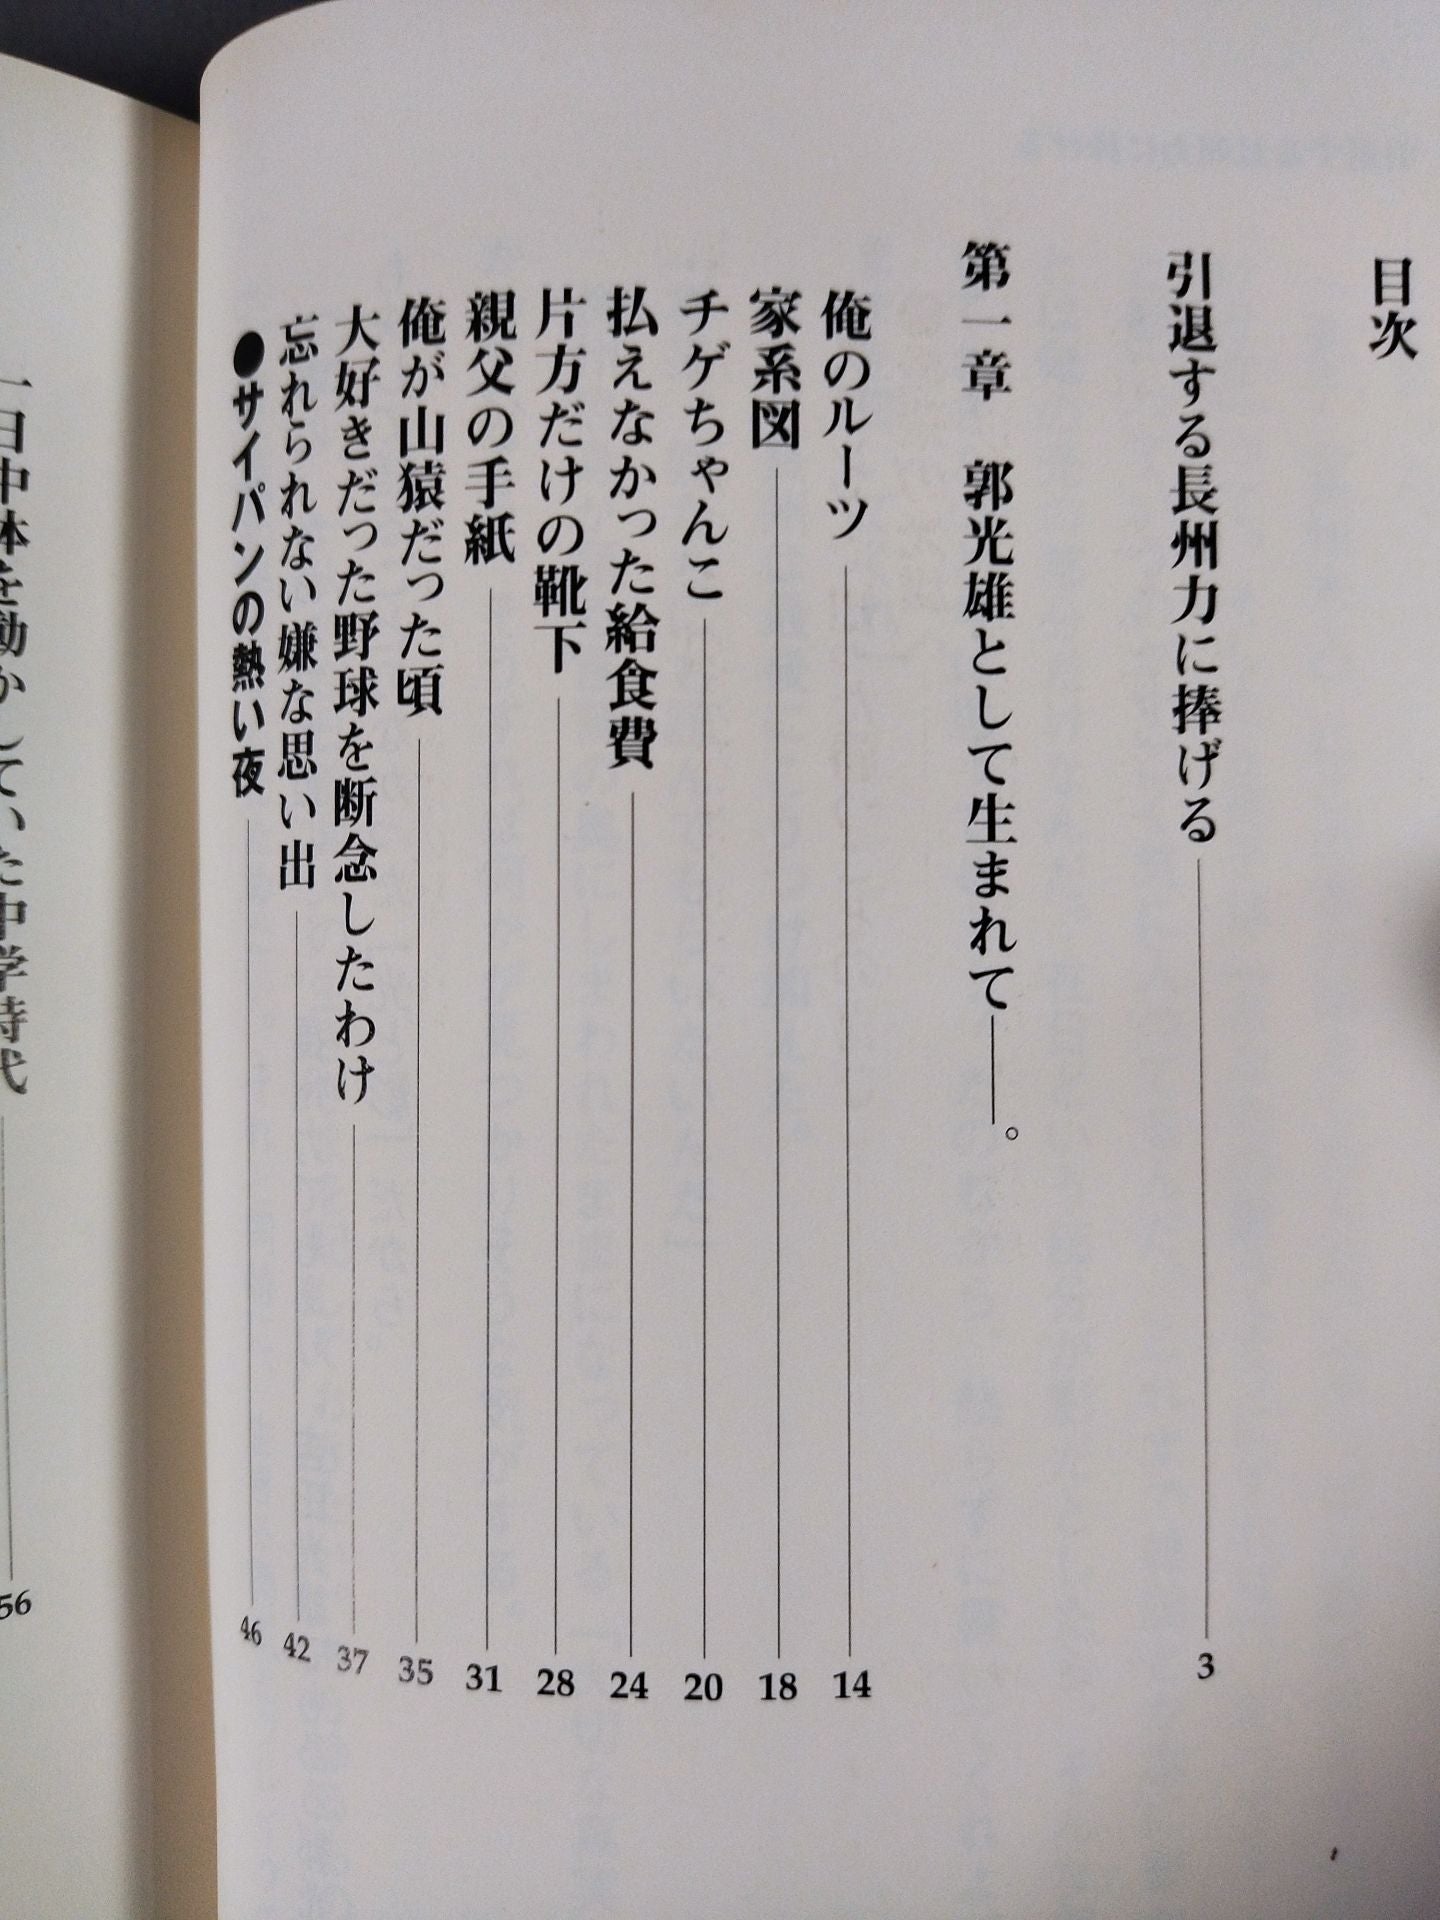 目次
引退する長州力に捧げる 3
第一章 郭光雄として生まれて——。
俺のルーツ 14
家系図 18
チゲちゃんこ 20
払えなかった給食費 24
片方だけの靴下 28
親父の手紙 31
俺が山猿だった頃 35
大好きだった野球を断念したわけ 37
忘れられない嫌な思い出 42
●サイパンの熱い夜 46
一日中体を動かしていた中学時代 56